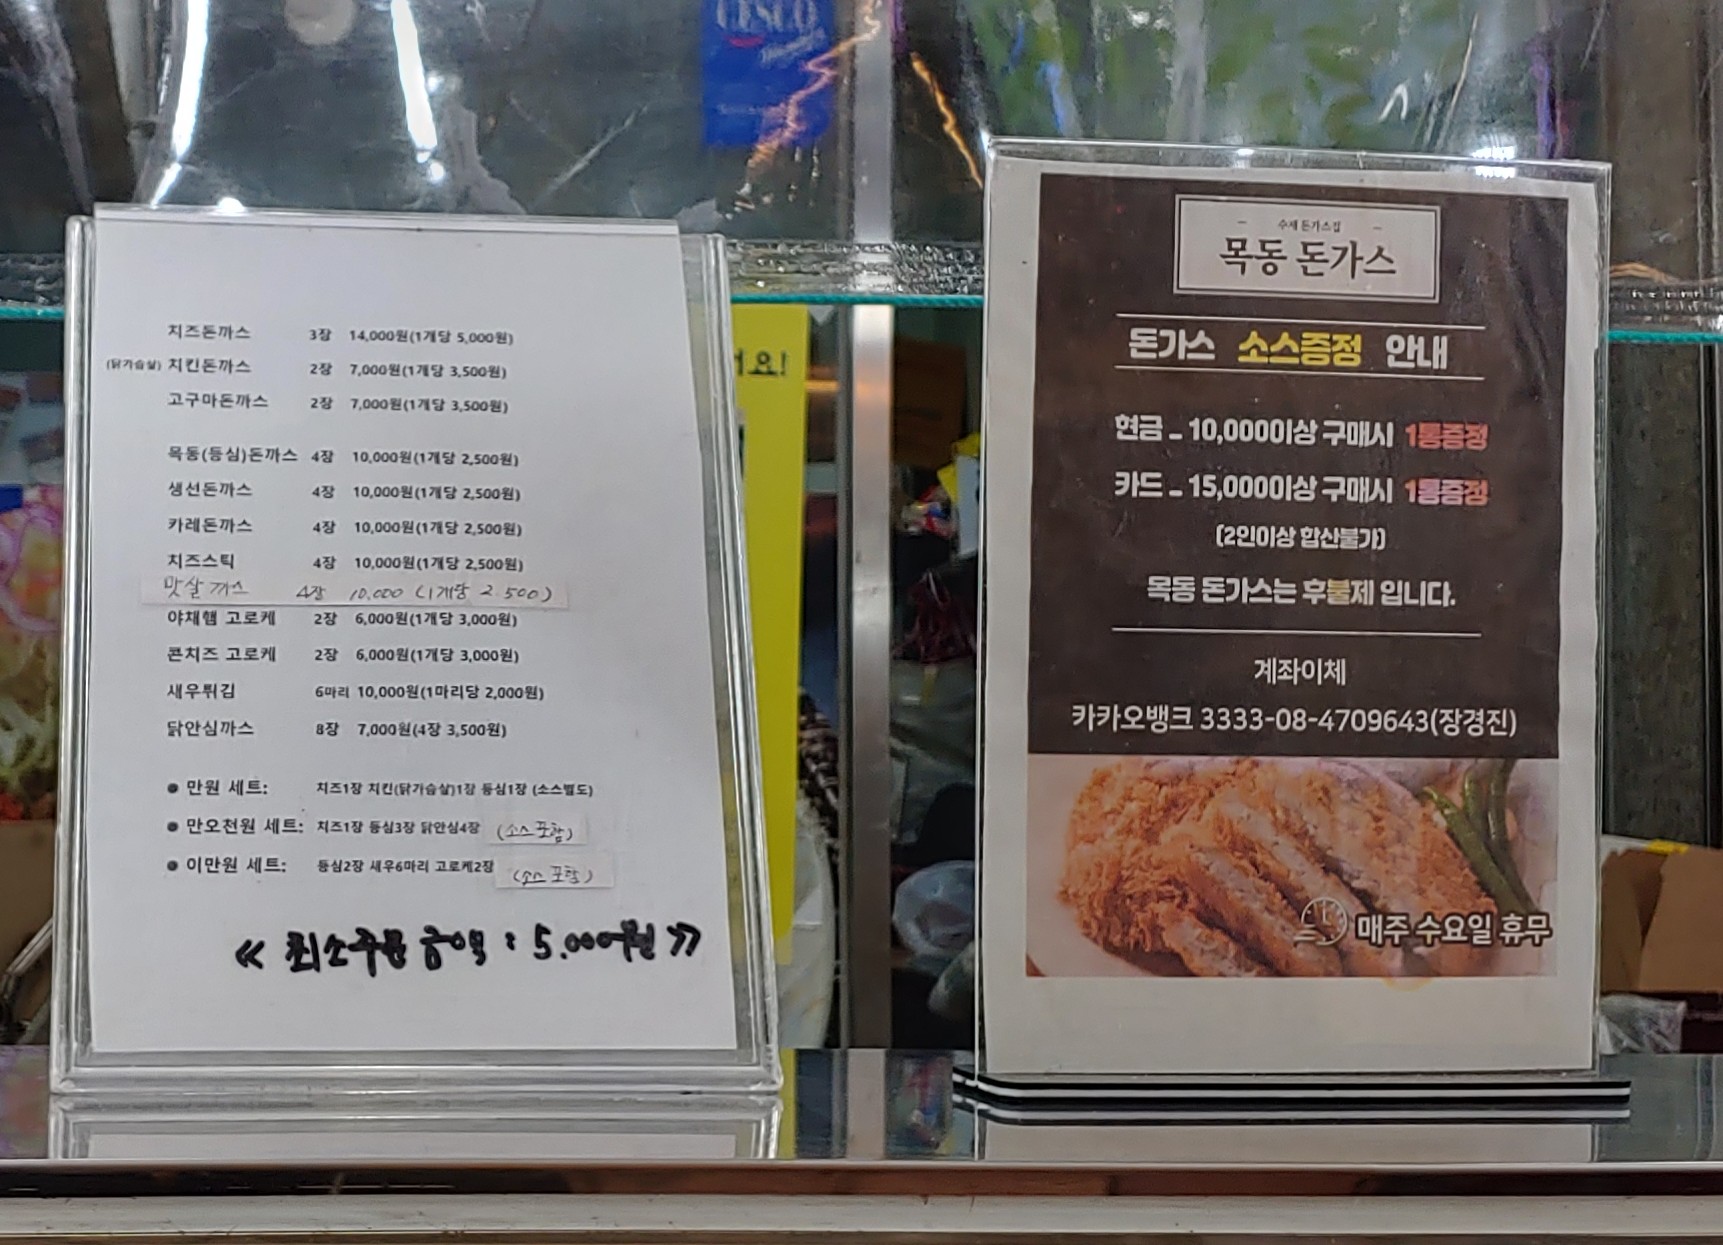 CESCO
요!
치즈돈까스 3장 14,000원(1개당 5,000원)
(닭가슴살) 치킨돈까스 2장 7,000원(1개당 3,500원)
고구마돈까스 2장 7,000원(1개당 3,500원)
목동(등심)돈까스 4장 10,000원(1개당 2,500원)
생선돈까스 4장 10,000원(1개당 2,500원)
카레돈까스 4장 10,000원(1개당 2,500원)
치즈스틱 4장 10,000원(1개당 2,500원)
맛살까스 4장 10,000 (1개당 2.500)
야채햄 고로케 2장 6,000원(1개당 3,000원)
콘치즈 고로케 2장 6,000원(1개당 3,000원)
새우튀김 6마리 10,000원(1마리당 2,000원)
닭안심까스 8장 7,000원(4장 3,500원)
● 만원 세트: 치즈1장 치킨(닭가슴살)1장 등심1장 (소스별도)
● 만오천원 세트: 치즈1장 등심3장 닭안심4장 (소스포함)
● 이만원 세트: 등심2장 새우6마리 고로케2장 (소스포함)
≪ 최소주문금액 : 5.000원 ≫
수제 돈가스집
목동 돈가스
돈가스 소스증정 안내
현금 - 10,000이상 구매시 1통증정
카드 - 15,000이상 구매시 1통증정
(2인이상 합산불가)
목동 돈가스는 후불제 입니다.
계좌이체
카카오뱅크 3333-08-4709643(장경진)
매주 수요일 휴무